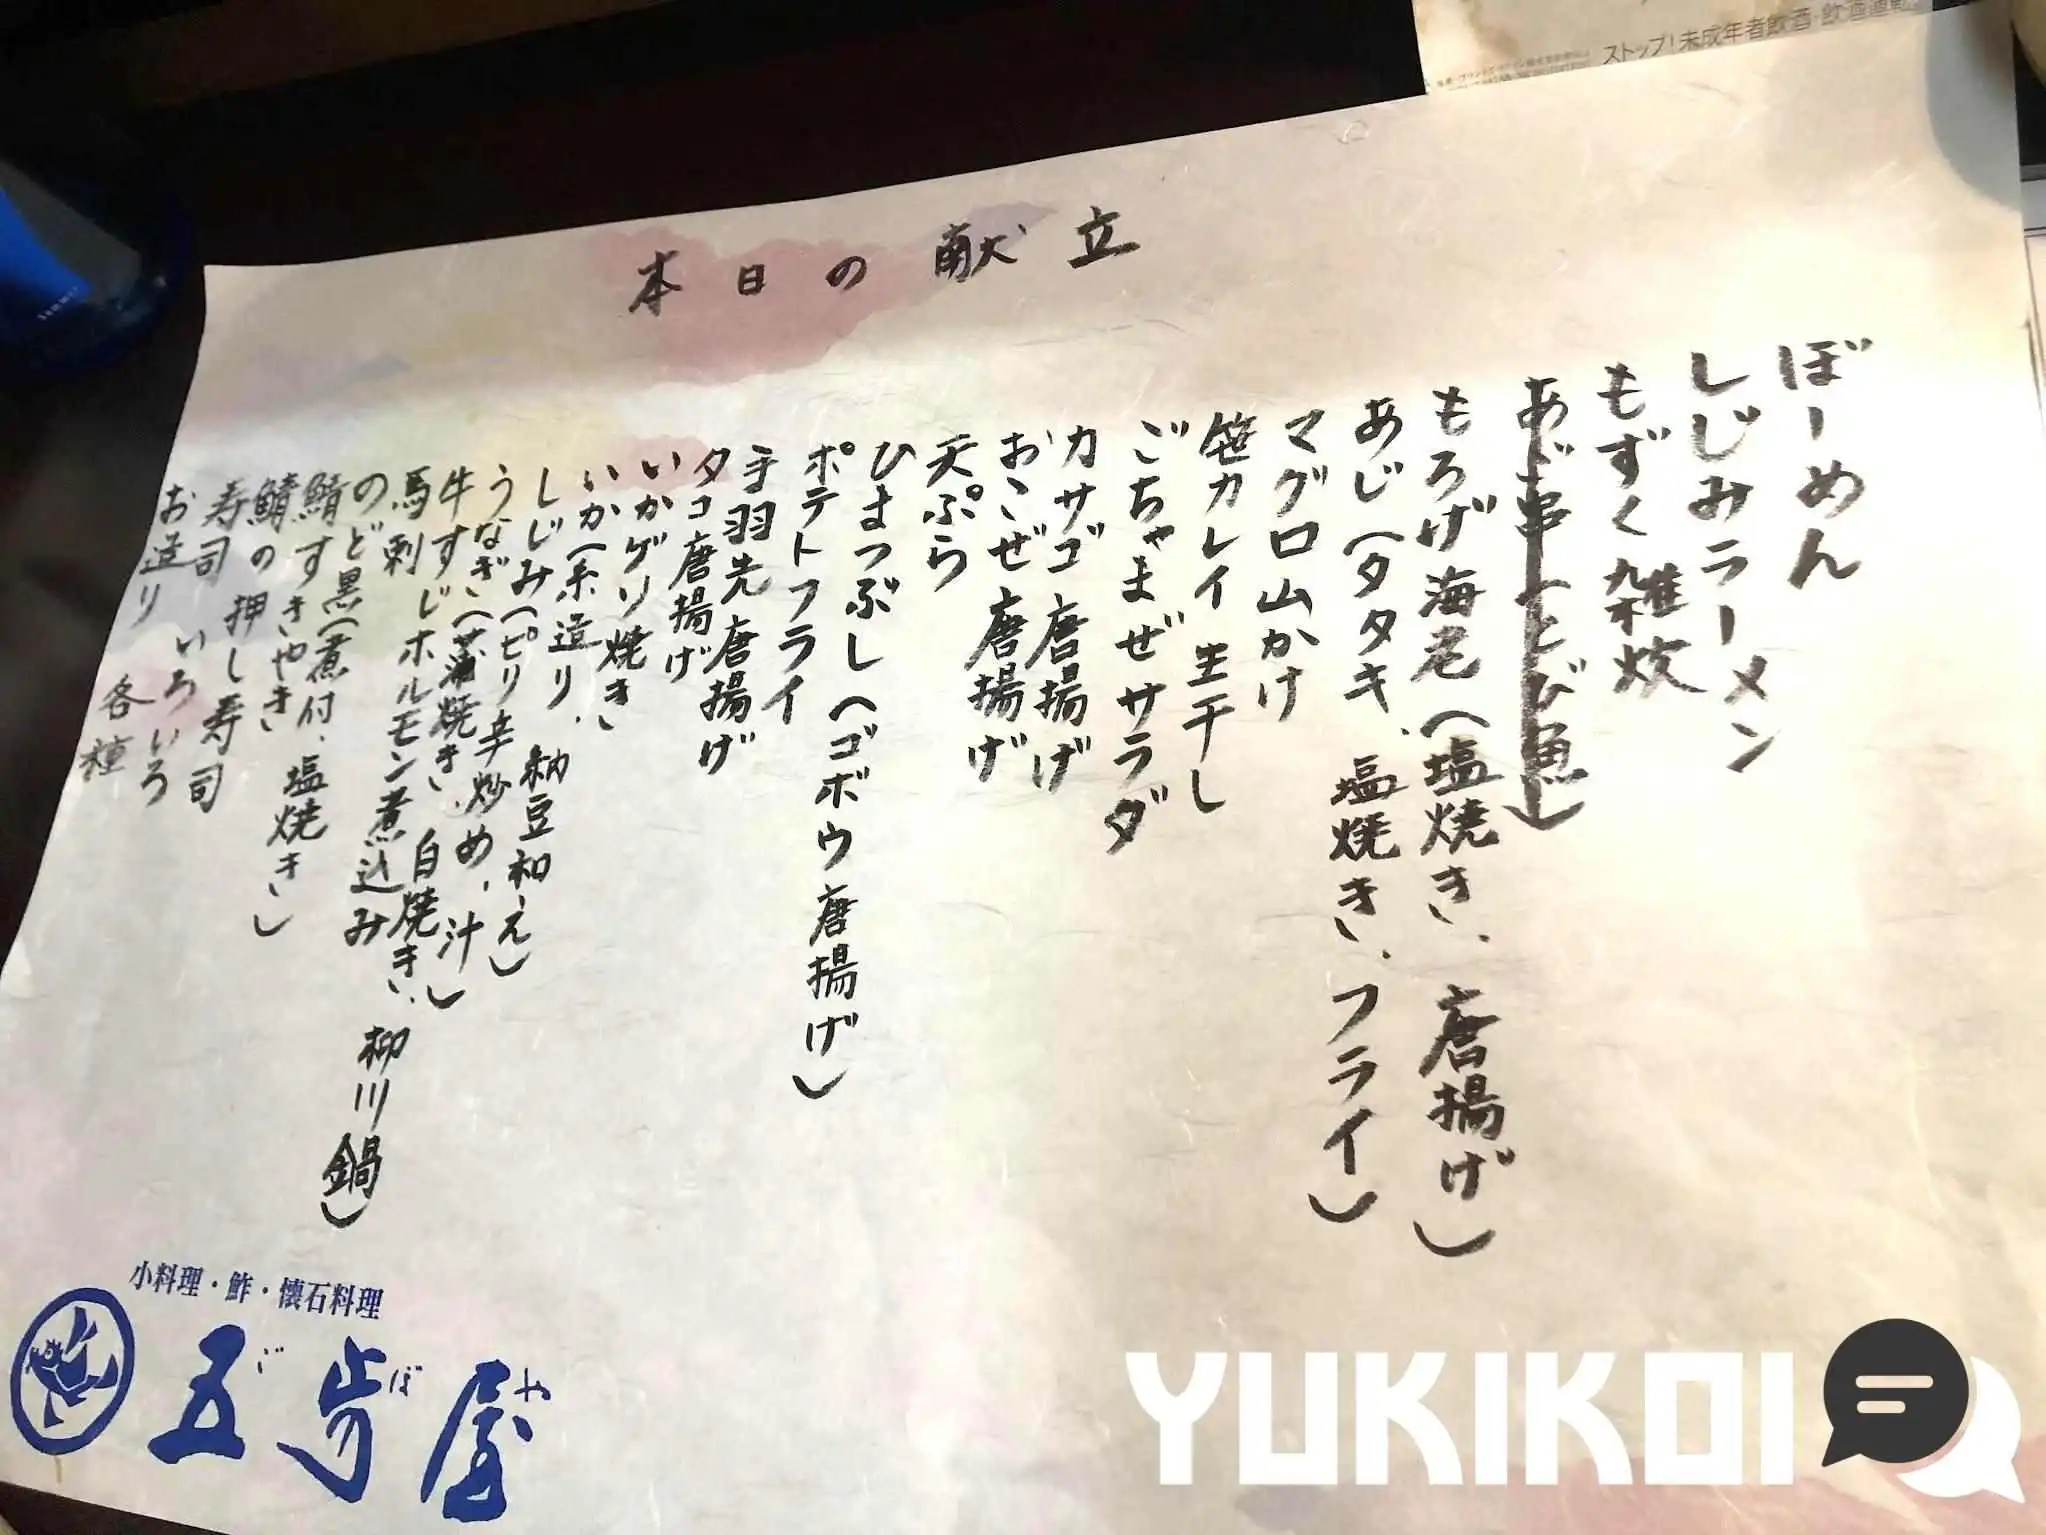 ストップ!未成年者飲酒・飲酒運転
本日の献立
ぼーめん
しじみラーメン
もずく雑炊
あご串(とび魚)
もろげ海老(塩焼き、唐揚げ)
あじ(タタキ、塩焼き、フライ)
マグロ山かけ
笹カレイ生干し
ごちゃまぜサラダ
カサゴ唐揚げ
おこぜ唐揚げ
天ぷら
ひまつぶし(ゴボウ唐揚げ)
ポテトフライ
手羽先唐揚げ
タコ唐揚げ
いかゲリ焼き
いか(糸造り、納豆和え)
しじみ(ピリ辛炒め、汁)
うなぎ(蒲焼き、白焼き、柳川鍋)
牛すじホルモン煮込み
馬刺
のど黒(煮付、塩焼き)
鯖すきやき
鯖の押し寿司
寿司いろいろ
お造り各種
小料理・鮓・懐石料理
五歩屋
ごぼや
YUKIKOI